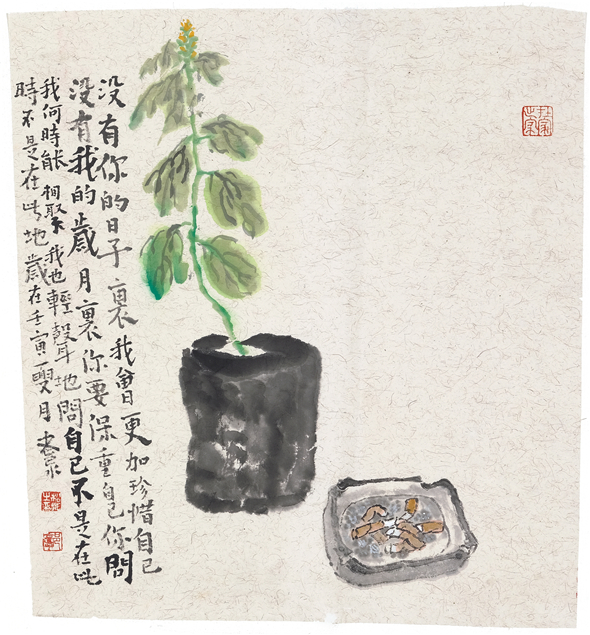 没有你的日子裏我會更加珍惜自己
没有我的歲月裏你要保重自己你問
我何時能相聚我也輕聲地問自己不是在此
時不是在此地歲在壬寅夏月